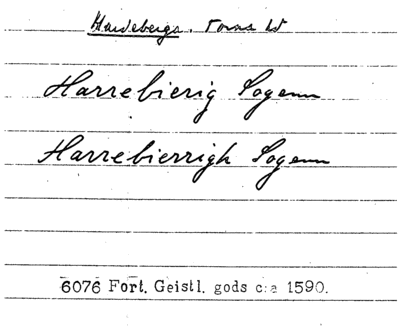 Hardeberga. Torna hd
Harrebierig Sogenn
Harrebierrigh Sogenn
6076 Fort. Geistl. gods c:a 1590.